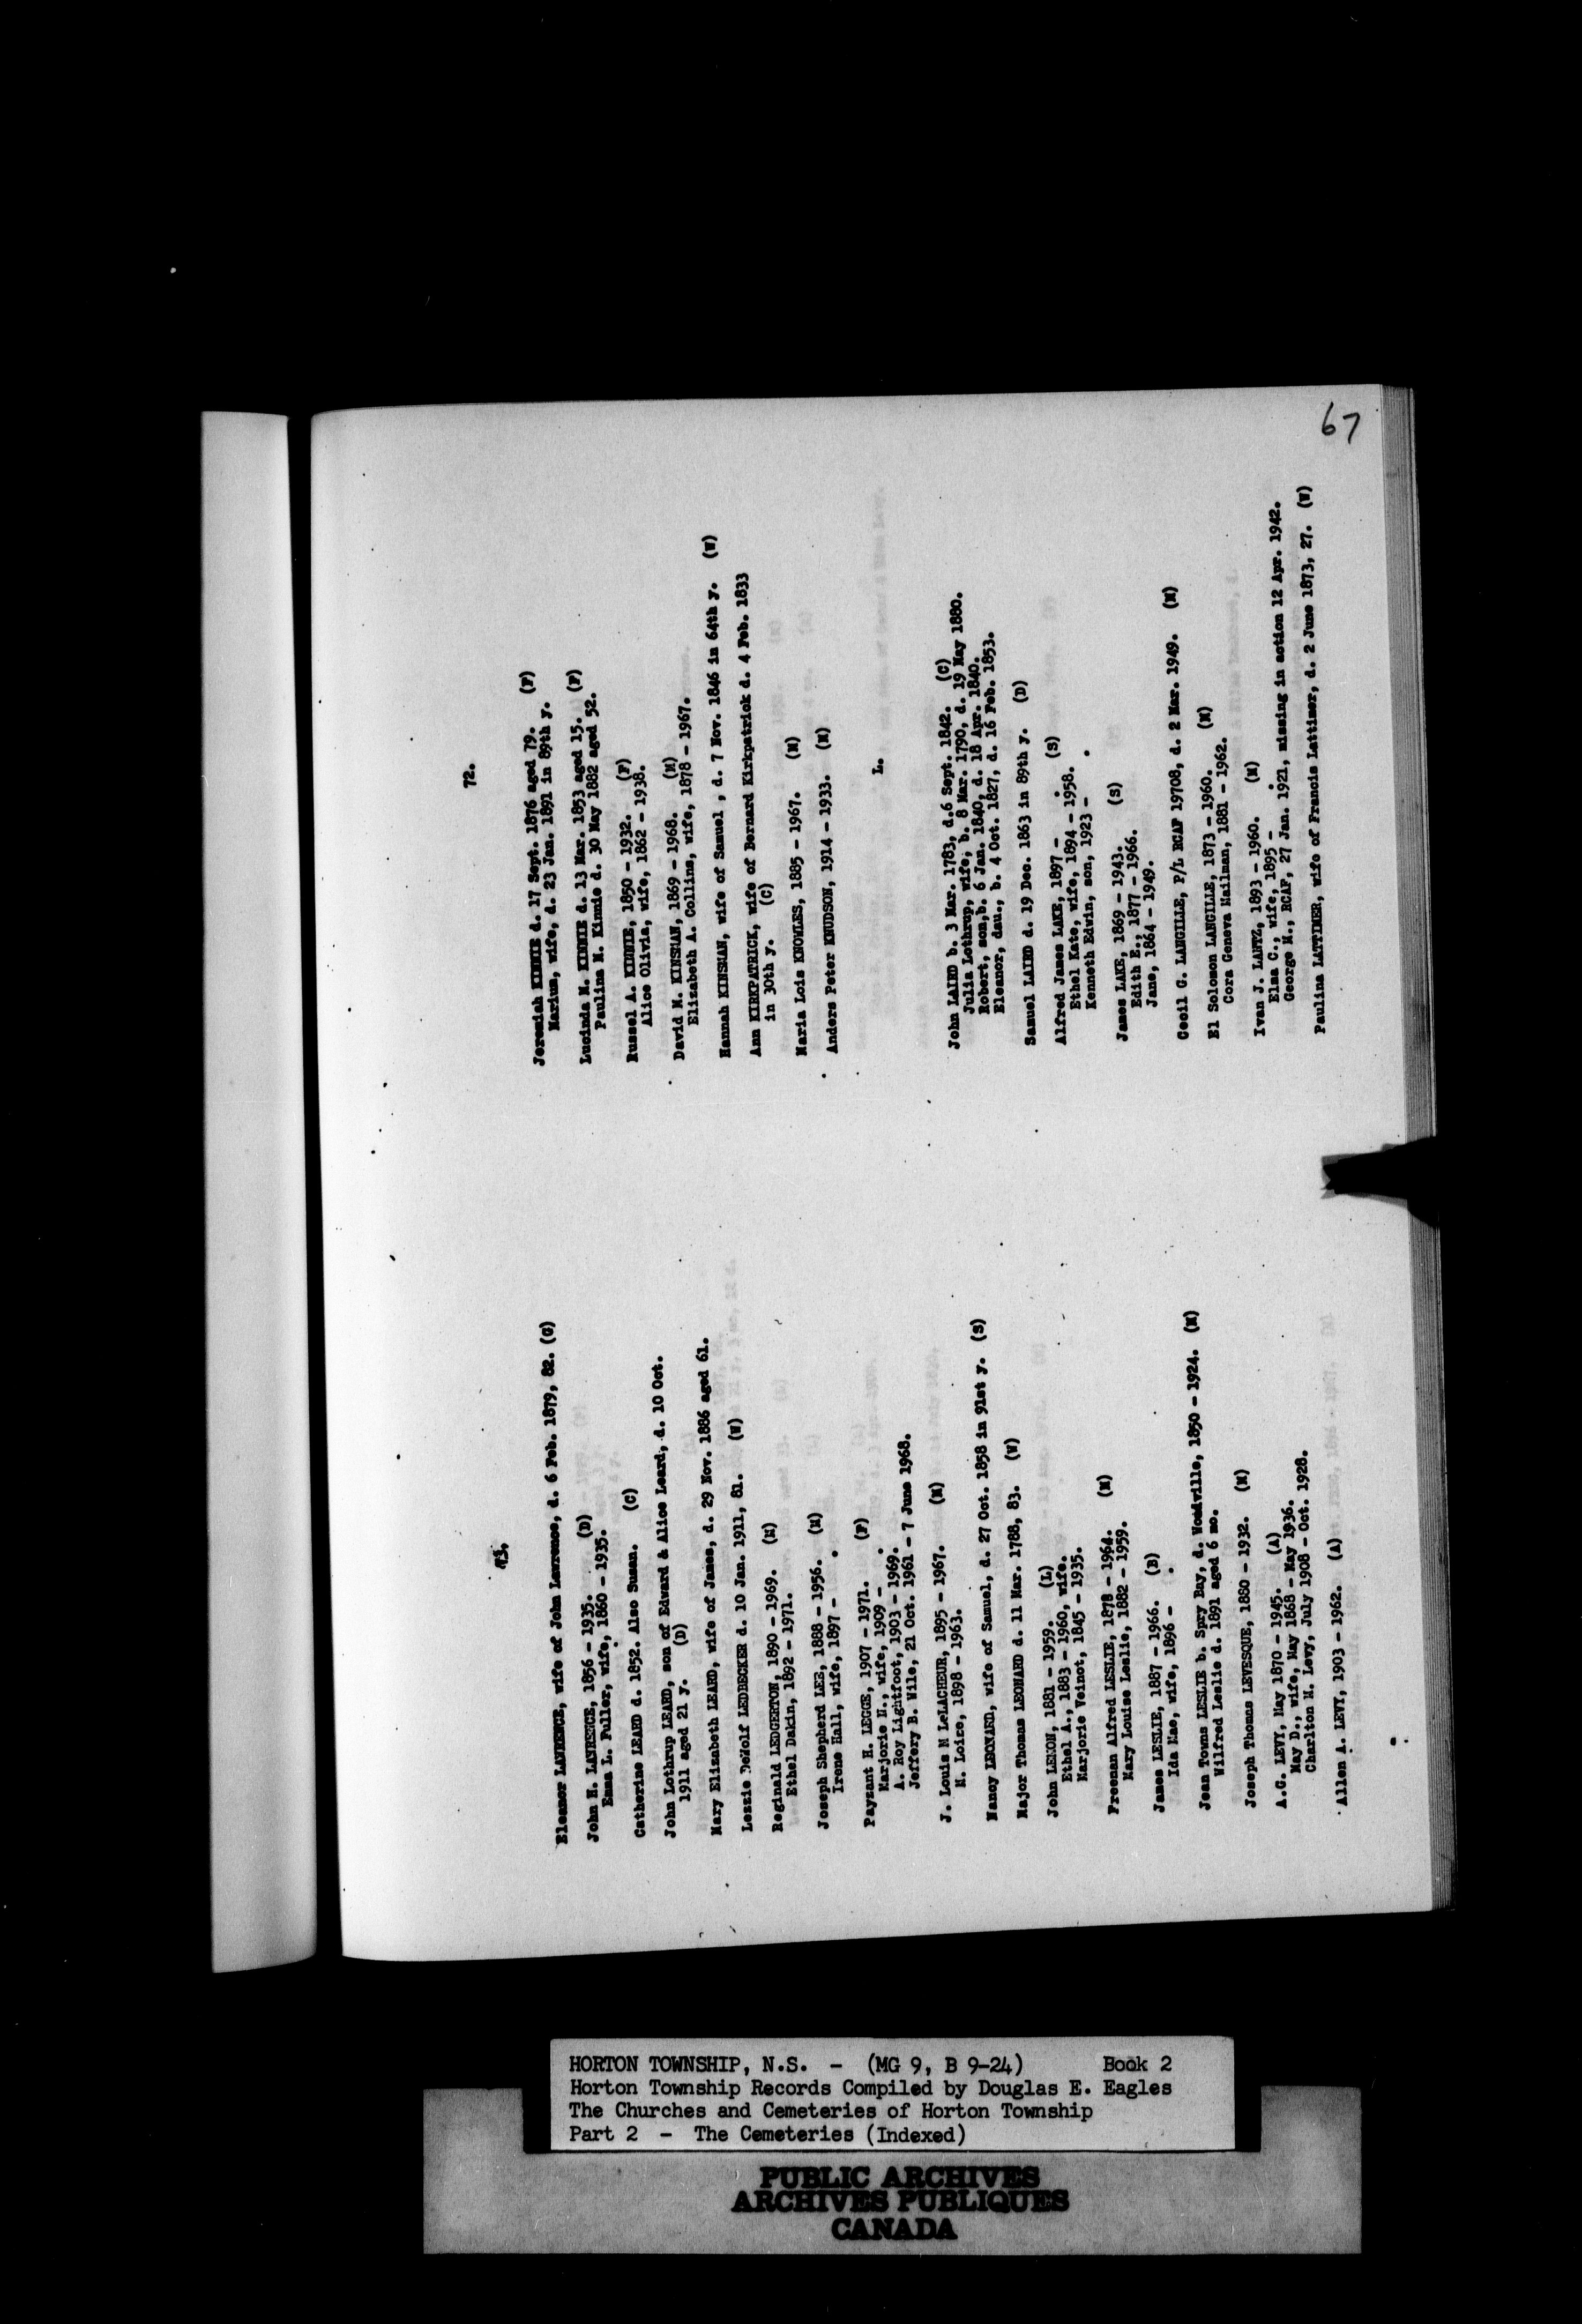 67
72.
Jeremiah KINNIE d. 17 Sept. 1876 aged 79. (F)
Marium, wife, d. 23 Jan. 1891 in 89th y.
Lucinda M. KINNIE d. 13 Mar. 1853 aged 15. (F)
Paulina M. Kinnie d. 30 May 1882 aged 52.
Russel A. KINNIE, 1850 - 1932. (F)
Alice Olivia, wife, 1862 - 1938.
David M. KINSMAN, 1869 - 1968. (M)
Elizabeth A. Collins, wife, 1878 - 1967.
Hannah KINSMAN, wife of Samuel , d. 7 Nov. 1846 in 64th y. (W)
Ann KIRKPATRICK, wife of Bernard Kirkpatrick d. 4 Feb. 1833
in 30th y. (C)
Maria Lois KNOWLES, 1885 - 1967. (M)
Anders Peter KNUDSON, 1914 - 1933. (M)
L.
John LAIRD b. 3 Mar. 1783, d.6 Sept. 1842. (C)
Julia Lothrup, wife, b. 8 Mar. 1790, d. 19 May 1880.
Robert, son,b. 6 Jan. 1840, d. 18 Apr. 1840.
Eleanor, dau., b. 4 Oct. 1827, d. 16 Feb. 1853.
Samuel LAIRD d. 19 Dec. 1863 in 89th y. (D)
Alfred James LAKE, 1897 - . (S)
Ethel Kate, wife, 1894 - 1958.
Kenneth Edwin, son, 1923 - .
James LAKE, 1869 - 1943. (S)
Edith E., 1877 - 1966.
Jane, 1864 - 1949.
Cecil G. LANGILLE, P/L RCAF 19708, d. 2 Mar. 1949. (M)
El Solomon LANGILLE, 1873 - 1960. (M)
Cora Geneva Mailman, 1881 - 1962.
Ivan J. LANTZ, 1893 - 1960. (M)
Elna C., wife, 1895 - .
George M., RCAF, 27 Jan. 1921, missing in action 12 Apr. 1942.
Paulina LATTIMER, wife of Francis Lattimer, d. 2 June 1873, 27. (W)
73.
Eleanor LAWRENCE, wife of John Lawrence, d. 6 Feb. 1879, 82. (G)
John H. LAWRENCE, 1856 - 1935. (D)
Emma L. Fuller, wife, 1860 - 1935.
Catherine LEARD d. 1852. Also Susan. (C)
John Lothrup LEARD, son of Edward & Alice Leard, d. 10 Oct.
1911 aged 21 y. (D)
Mary Elizabeth LEARD, wife of James, d. 29 Nov. 1886 aged 61.
Lezzie DeWolf LEDBECKER d. 10 Jan. 1911, 81. (W)
Reginald LEDGERTON, 1890 - 1969. (M)
Ethel Dakin, 1892 - 1971.
Joseph Shepherd LEE, 1888 - 1956. (M)
Irene Hall, wife, 1897 - .
Payzant H. LEGGE, 1907 - 1971. (F)
Marjorie N., wife, 1909 - .
A. Roy Lightfoot, 1903 - 1969.
Jeffery B. Wile, 21 Oct. 1961 - 7 June 1968.
J. Louis M LeLACHEUR, 1895 - 1967. (M)
M. Loize, 1898 - 1963.
Nancy LEONARD, wife of Samuel, d. 27 Oct. 1858 in 91st y. (S)
Major Thomas LEONARD d. 11 Mar. 1788, 83. (W)
John LEMON, 1881 - 1959. (L)
Ethel A., 1883 - 1960, wife.
Marjorie Veinot, 1845 - 1935.
Freeman Alfred LESLIE, 1878 - 1964. (M)
Mary Louise Leslie, 1882 - 1959.
James LESLIE, 1887 - 1966. (B)
Ida Mae, wife, 1896 - .
Jean Towns LESLIE b. Spry Bay, d. Woodville, 1850 - 1924. (M)
Wilfred Leslie d. 1891 aged 6 mo.
Joseph Thomas LEVESQUE, 1880 - 1932. (M)
A.C. LEVY, May 1870 - 1945. (A)
May D., wife, May 1868 - May 1936.
Charlton M. Levy, July 1908 - Oct. 1928.
Allen A. LEVY, 1903 - 1962. (A)
HORTON TOWNSHIP, N.S. - (MG 9, B 9-24) Book 2
Horton Township Records Compiled by Douglas E. Eagles
The Churches and Cemeteries of Horton Township
Part 2 - The Cemeteries (Indexed)
PUBLIC ARCHIVES
ARCHIVES PUBLIQUES
CANADA